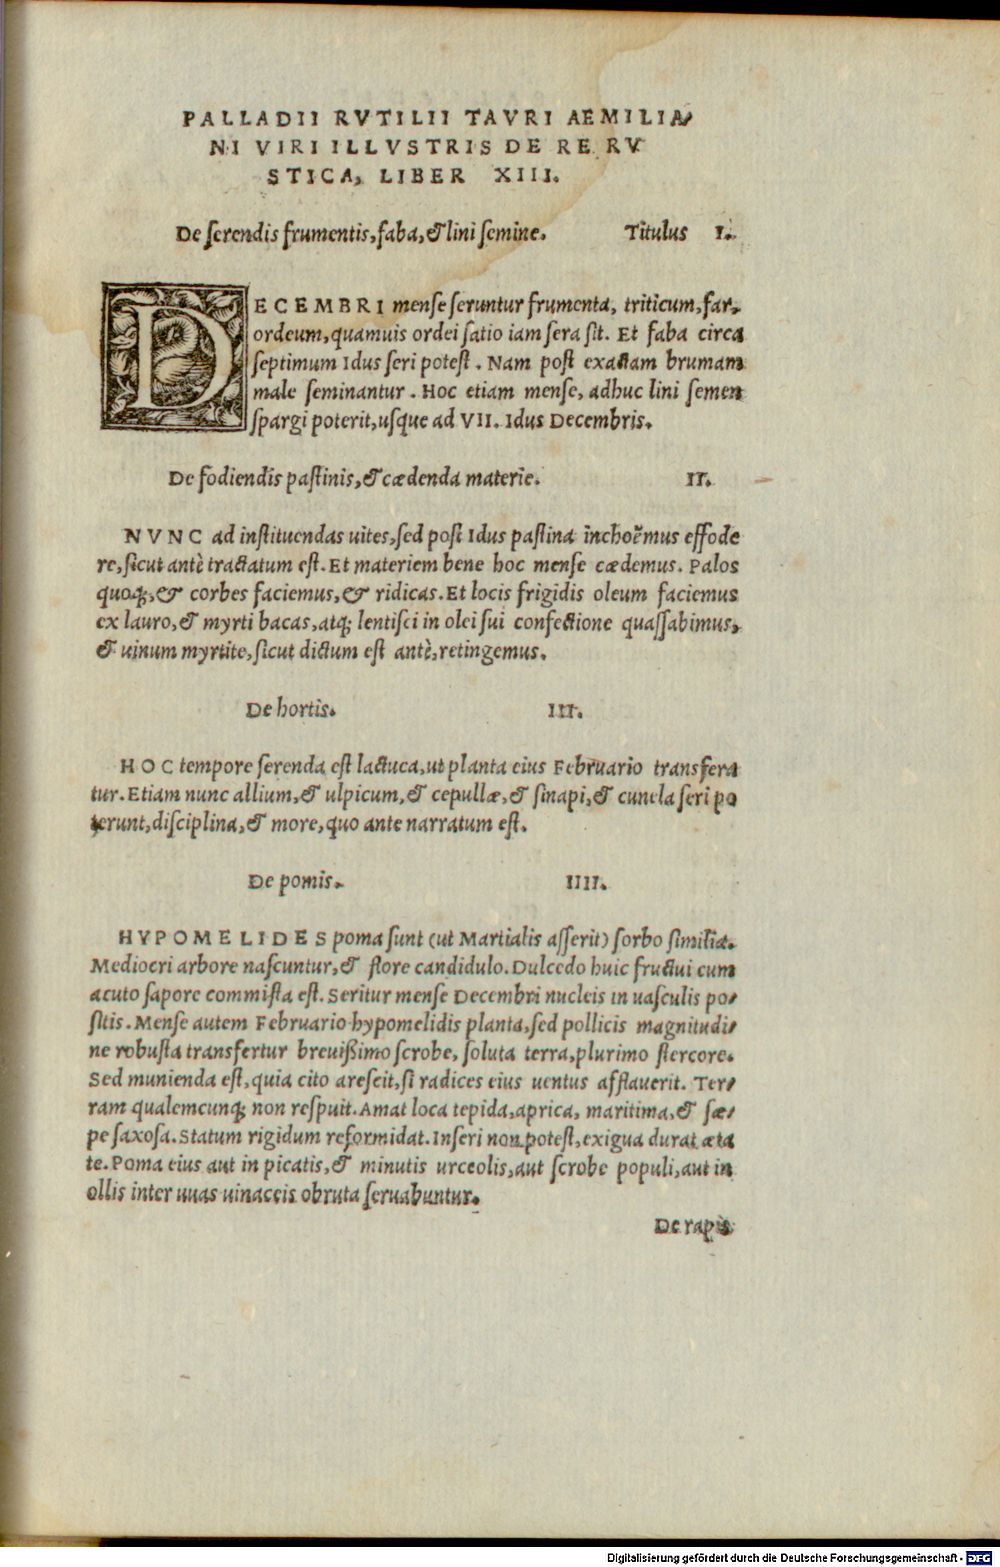 PALLADII RVTILII TAVRI AEMILIA-
NI VIRI ILLVSTRIS DE RE RV
STICA, LIBER XIII.
De ſerendis frumentis, faba, & lini ſemine. Titulus I.
DECEMBRI menſe ſeruntur frumenta, triticum, far,
ordeum, quamuis ordei ſatio iam ſera ſit. Et faba circa
ſeptimum Idus ſeri poteſt. Nam poſt exactam brumam
male ſeminantur. Hoc etiam menſe, adhuc lini ſemen
ſpargi poterit, uſque ad VII. Idus Decembris.
De fodiendis paſtinis, & cædenda materie. II.
NVNC ad inſtituendas uites, ſed poſt Idus paſtina inchoẽmus effode
re, ſicut antè tractatum eſt. Et materiem bene hoc menſe cædemus. Palos
quoq;, & corbes faciemus, & ridicas. Et locis frigidis oleum faciemus
ex lauro, & myrti bacas, atq; lentiſci in olei ſui confectione quaſſabimus,
& uinum myrtite, ſicut dictum eſt antè, retingemus.
De hortis. III.
HOC tempore ſerenda eſt lactuca, ut planta eius Februario transfera
tur. Etiam nunc allium, & ulpicum, & cepullæ, & ſinapi, & cunela ſeri po
terunt, diſciplina, & more, quo ante narratum eſt.
De pomis. IIII.
HYPOMELIDES poma ſunt (ut Martialis aſſerit) ſorbo ſimilia.
Mediocri arbore naſcuntur, & flore candidulo. Dulcedo huic fructui cum
acuto ſapore commiſta eſt. Seritur menſe Decembri nucleis in uaſculis po-
ſitis. Menſe autem Februario hypomelidis planta, ſed pollicis magnitudi-
ne robuſta transfertur breuißimo ſcrobe, ſoluta terra, plurimo ſtercore.
Sed munienda eſt, quia cito areſcit, ſi radices eius uentus afflauerit. Ter-
ram qualemcunq; non reſpuit. Amat loca tepida, aprica, maritima, & ſæ-
pe ſaxoſa. Statum rigidum reformidat. Inſeri non poteſt, exigua durat æta
te. Poma eius aut in picatis, & minutis urceolis, aut ſcrobe populi, aut in
ollis inter uuas uinaceis obruta ſeruabuntur.
De rapis
Digitalisierung gefördert durch die Deutsche Forschungsgemeinschaft - DFG